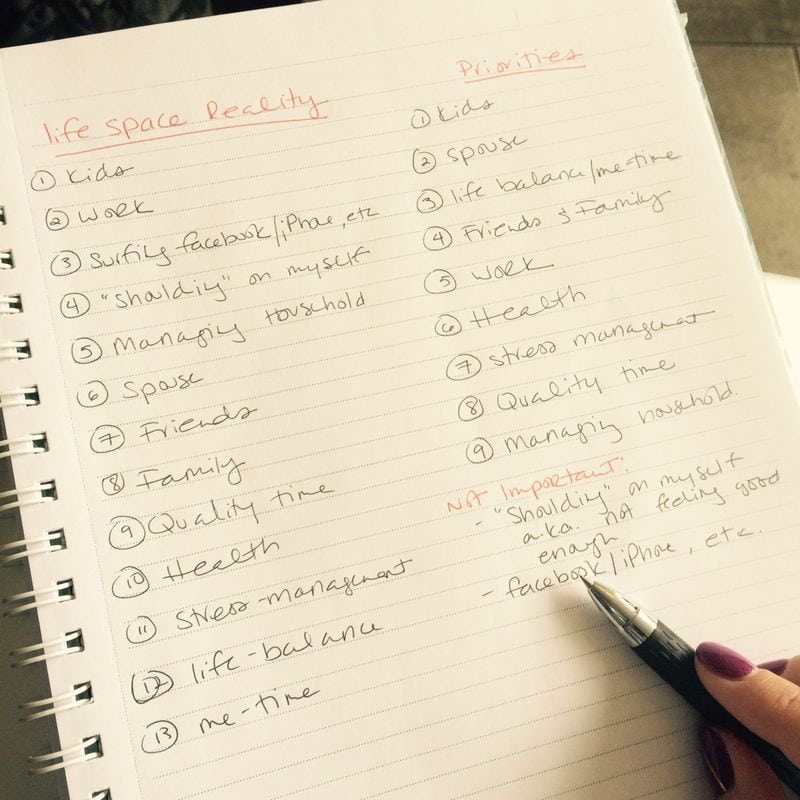 life space Reality
① Kids
② Work
③ Surfing facebook/iPhone, etc
④ "Shoulding" on myself
⑤ Managing Household
⑥ Spouse
⑦ Friends
⑧ Family
⑨ Quality time
⑩ Health
⑪ Stress-management
⑫ life-balance
⑬ me-time
Priorities
① Kids
② Spouse
③ life balance/me-time
④ Friends & Family
⑤ Work
⑥ Health
⑦ Stress management
⑧ Quality time
⑨ Managing household.
Not Important:
- "Shoulding" on myself
a.k.a. not feeling good
enough
- facebook/iPhone, etc.